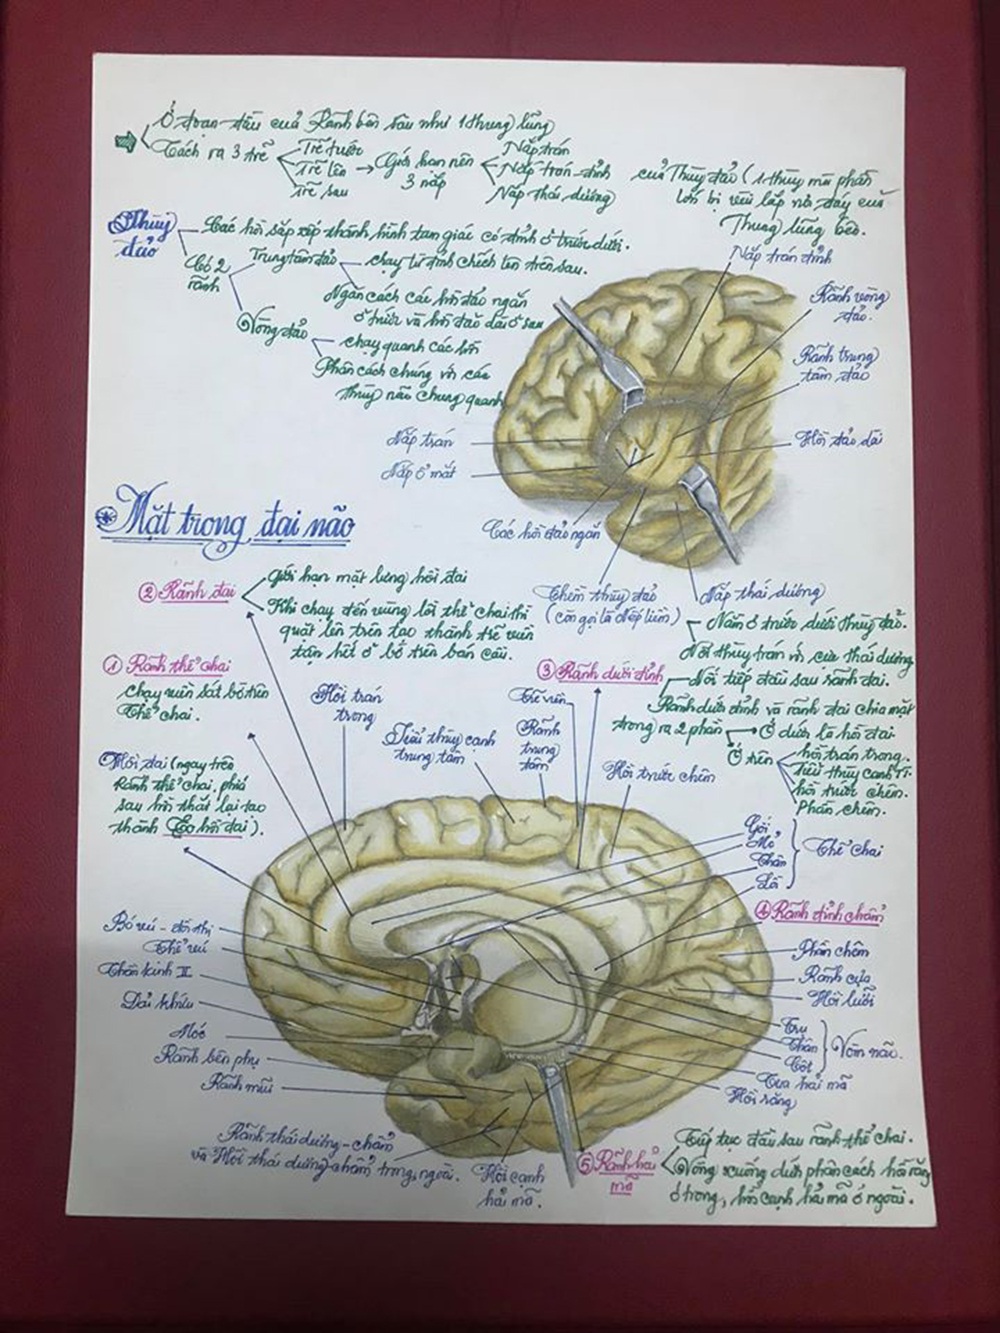 Ở đoạn đầu của Rãnh bên sâu như 1 thung lũng
Tách ra 3 trẽ
Trẽ trước
Trẽ lên
Trẽ sau
Giới hạn nên
3 nắp
Nắp trán
Nắp trán-đỉnh
Nắp thái dương
của Thùy đảo (1 thùy mà phần
lớn bị vùi lấp nở đáy của
Thung lũng bên.
Thùy
đảo
Các hồi sắp xếp thành hình tam giác có đỉnh ở trước dưới.
Có 2
rãnh
Trung tâm đảo
chạy từ đỉnh chếch lên trên sau.
Ngăn cách các hồi đảo ngắn
ở trước và hồi đảo dài ở sau
Vòng đảo
chạy quanh các hồi
Phân cách chúng với các
thùy não chung quanh
Nắp trán đỉnh
Rãnh vòng
đảo.
Rãnh trung
tâm đảo
Hồi đảo dài
Nắp trán
Nắp ổ mắt
Các hồi đảo ngắn
Thềm thùy đảo
(còn gọi là Nếp liềm)
Nắp thái dương
Nằm ở trước dưới thùy đảo.
Nối thùy trán với cực thái dương
Mặt trong đại não
② Rãnh đai
Giới hạn mặt lưng hồi đai
Khi chạy đến vùng lồi thể chai thì
quặt lên trên tạo thành trẽ viền
tận hết ở bờ trên bán cầu.
① Rãnh thể chai
chạy viền sát bờ trên
Thể chai.
③ Rãnh dưới đỉnh
Nối tiếp đầu sau rãnh đai.
Rãnh dưới đỉnh và rãnh đai chia mặt
trong ra 2 phần
Ở dưới là hồi đai
Ở trên
hồi trán trong.
Tiểu thùy cạnh TT.
hồi trước chêm.
Phần chêm.
Hồi trán
trong
Tiểu thùy cạnh
trung tâm
Trẽ viền
Rãnh
trung
tâm
Hồi trước chêm
Hồi đai (ngay trên
Rãnh thể chai, phía
sau hồi thắt lại tạo
thành Eo hồi đai).
Gối
Mỏ
Thân
Lồi
Thể chai
④ Rãnh đỉnh chẩm
Phần chêm
Rãnh cựa
Hồi lưỡi
Trụ
Thân
Cột
Vòm não.
Tua hải mã
Hồi răng
Bó vú - đồi thị
Thể vú
Thần kinh II
Dải khứu
Móc
Rãnh bên phụ
Rãnh mũi
Rãnh thái dương-chẩm
và Hồi thái dương chẩm trong, ngoài.
Hồi cạnh
hải mã.
⑤ Rãnh hải
mã
Tiếp tục đầu sau rãnh thể chai.
Vòng xuống dưới phân cách hồi răng
ở trong, hồi cạnh hải mã ở ngoài.